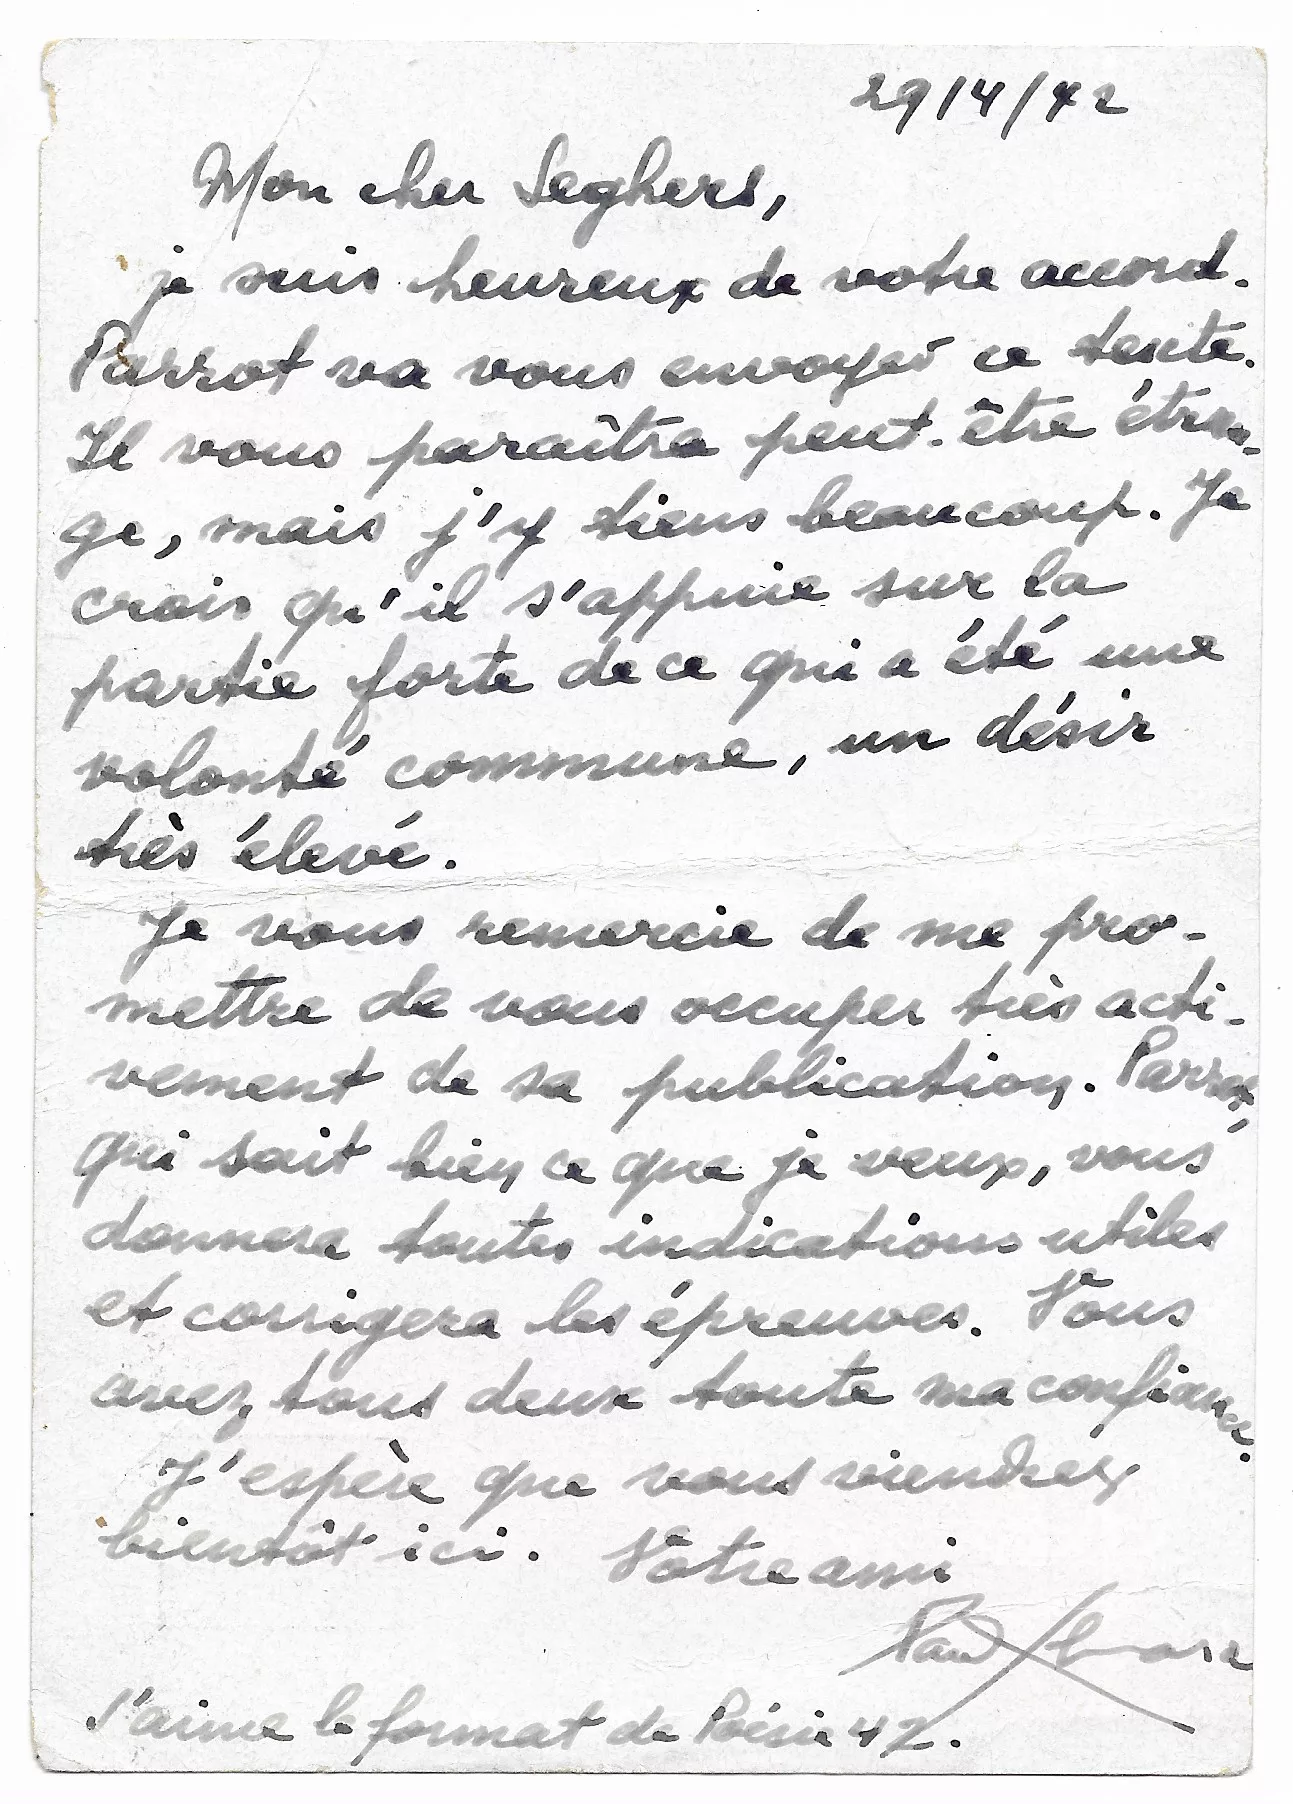 29/4/42
Mon cher Seghers,
je suis heureux de votre accord.
Parrot va vous envoyer ce texte.
Il vous paraîtra peut-être étran-
ge, mais j'y tiens beaucoup. Je
crois qu'il s'appuie sur la
partie forte de ce qui a été une
volonté commune, un désir
très élevé.
Je vous remercie de me pro-
mettre de vous occuper très acti-
vement de sa publication. Parrot,
qui sait bien ce que je veux, vous
donnera toutes indications utiles
et corrigera les épreuves. Vous
avez tous deux toute ma confiance.
J'espère que vous viendrez
bientôt ici. Vôtre ami
Paul Eluard
J'aime le format de Poésie 42.